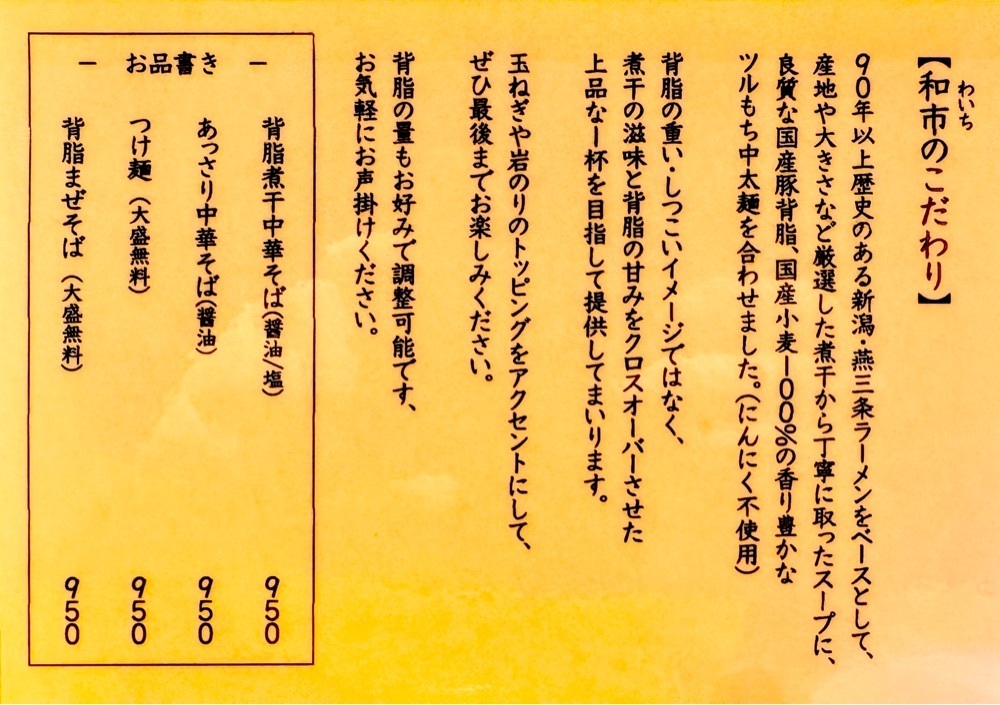 【和市のこだわり】
わいち
90年以上歴史のある新潟・燕三条ラーメンをベースとして、
産地や大きさなど厳選した煮干から丁寧に取ったスープに、
良質な国産豚背脂、国産小麦100%の香り豊かな
ツルもち中太麺を合わせました。(にんにく不使用)
背脂の重い・しつこいイメージではなく、
煮干の滋味と背脂の甘みをクロスオーバーさせた
上品な一杯を目指して提供してまいります。
玉ねぎや岩のりのトッピングをアクセントにして、
ぜひ最後までお楽しみください。
背脂の量もお好みで調整可能です、
お気軽にお声掛けください。
ー お品書き ー
背脂煮干中華そば(醤油/塩) 950
あっさり中華そば(醤油) 950
つけ麺(大盛無料) 950
背脂まぜそば(大盛無料) 950